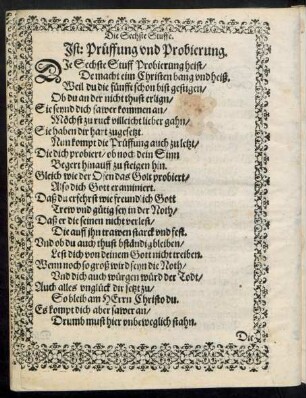 Die Sechste Stuffe.
Ist: Prüffung vnd Probierung.
DIe Sechste Stuff Probierung heist/
De macht eim Christen bang vnd heiß.
Weil du die fünffe schon bist gestigen/
Ob du an der nicht thust erlign/
Sie seynd dich sawer kommen an/
Möchst zu ruck villeicht lieber gahn/
Sie haben dir hart zugesetzt.
Nun kompt die Prüffung auch zu letzt/
Die dich probiert/ ob noch dein Sinn
Begert hinauff zu steigen hin.
Gleich wie der Ofen das Golt probiert/
Also dich Gott examiniert.
Daß du erfehrst wie freundlich Gott
Trew vnd gütig sey in der Noth/
Daß er die seinen nicht verlest/
Die auff ihn trawen starck vnd fest.
Vnd ob du auch thust bständig bleiben/
Lest dich von deinem Gott nicht treiben.
Wenn noch so groß wird seyn die Noth/
Vnd dich auch würgen würd der Todt/
Auch alles vnglück dir setzt zu/
So bleib am HErrn Christo du.
Es kompt dich aber sawer an/
Drumb must hier vnbeweglich stahn.
Die